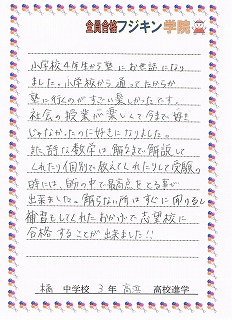 全員合格フジキン学院
小学校4年生から塾にお世話になり
ました。小学校から通ってたからか
塾に行くのがすごい楽しかったです。
社会の授業が楽しくて今まで好き
じゃなかったのに好きになりました。
また、苦手な数学は解るまで解説して
くれたり個別で教えてくれたりして受験の
時には、自分の中で最高点をとる事が
出来ました。解らない所はすぐに聞けるし
補習もしてくれたおかげで志望校に
合格することが出来ました!!
中学校 3年 高校進学